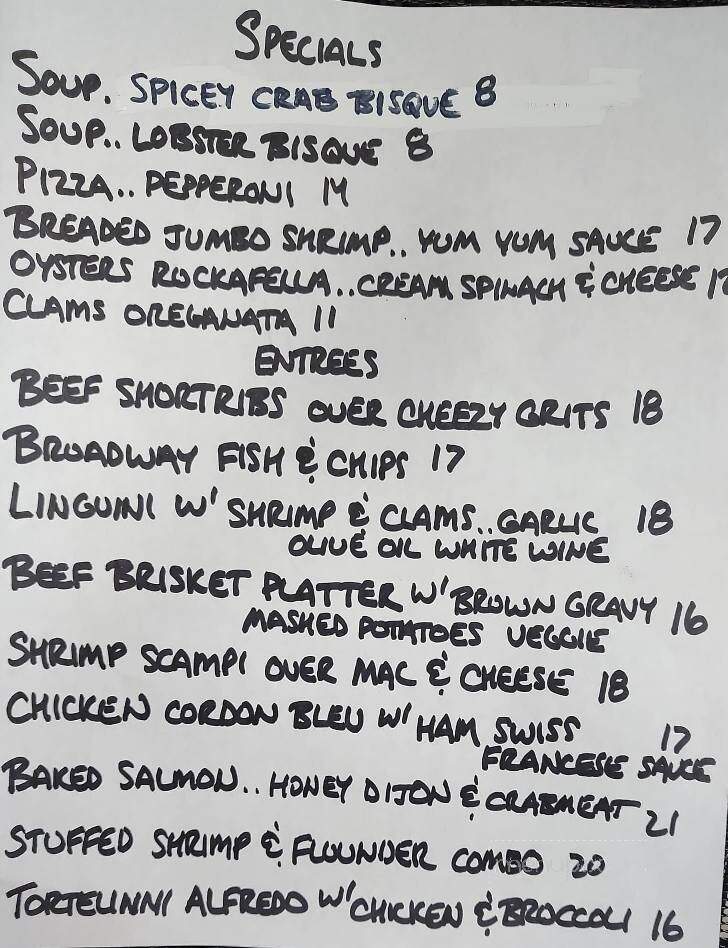 SPECIALS
SOUP. SPICEY CRAB BISQUE 8
SOUP.. LOBSTER BISQUE 8
PIZZA.. PEPPERONI 14
BREADED JUMBO SHRIMP.. YUM YUM SAUCE 17
OYSTERS ROCKAFELLA.. CREAM SPINACH & CHEESE
CLAMS OREGANATA 11
ENTREES
BEEF SHORTRIBS OVER CHEEZY GRITS 18
BROADWAY FISH & CHIPS 17
LINGUINI W' SHRIMP & CLAMS.. GARLIC 18
OLIVE OIL WHITE WINE
BEEF BRISKET PLATTER W' BROWN GRAVY 16
MASHED POTATOES VEGGIE
SHRIMP SCAMPI OVER MAC & CHEESE 18
CHICKEN CORDON BLEU W' HAM SWISS 17
FRANCESE SAUCE
BAKED SALMON.. HONEY DIJON & CRABMEAT 21
STUFFED SHRIMP & FLOUNDER COMBO 20
TORTELINNI ALFREDO W' CHICKEN & BROCCOLI 16